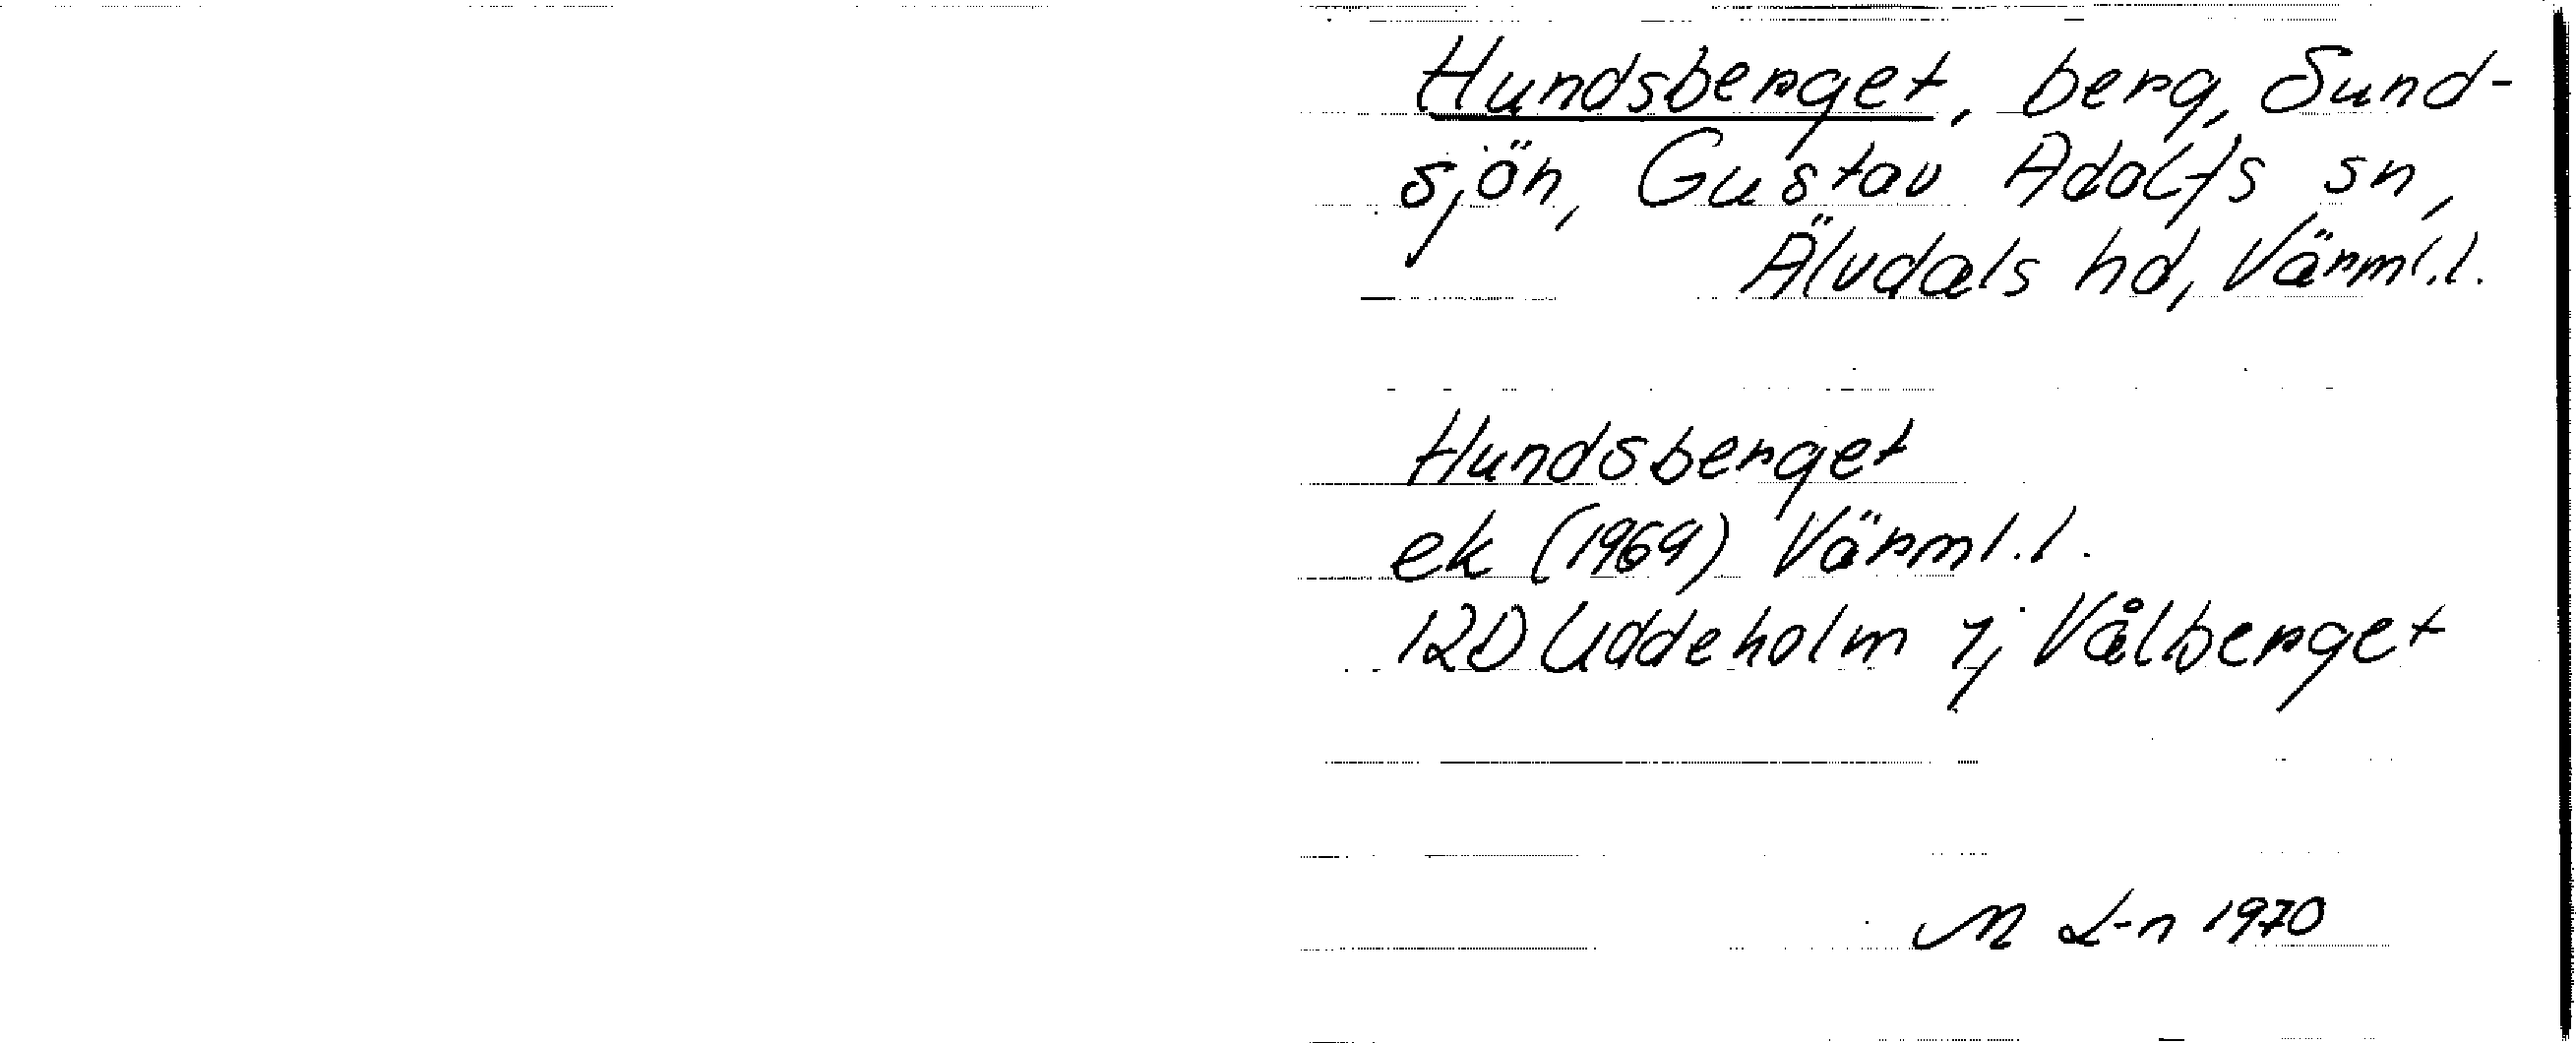 Hundsberget, berg, Sund-
sjön, Gustav Adolfs sn,
Älvdals hd, Värml.l.
Hundsberget
ek (1969) Värml.l.
12D Uddeholm 7j Vålberget
M L-n 1970